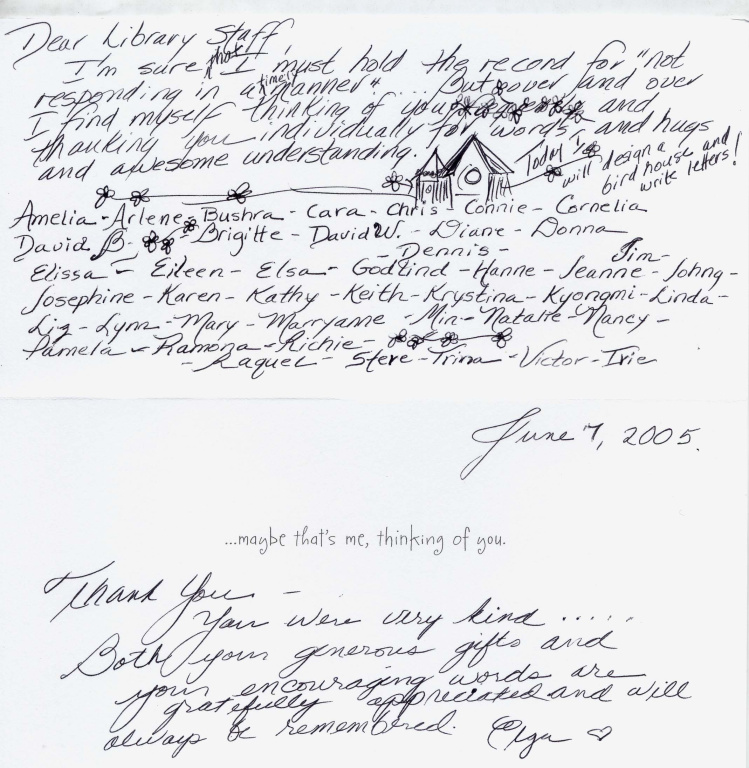 Dear Library Staff,
I'm sure that I must hold the record for "not
responding in a timely manner".... But over and over
I find myself thinking of you and
thanking you individually for words, and hugs
and awesome understanding.
Today I
will design a
bird house and
write letters!
Amelia - Arlene - Bushra - Cara - Chris - Connie - Cornelia
David B. - Brigitte - David W. - Diane - Donna
- Dennis - Jim -
Elissa - Eileen - Elsa - Godlind - Hanne - Jeanne - Johng -
Josephine - Karen - Kathy - Keith - Krystina - Kyongmi - Linda -
Liz - Lynn - Mary - Marryanne - Min - Natalie - Nancy -
Pamela - Ramona - Richie -
- Raquel - Steve - Trina - Victor - Irie
June 7, 2005.
...maybe that's me, thinking of you.
Thank You -
You were very kind .....
Both your generous gifts and
your encouraging words are
gratefully appreciated and will
always be remembered. Olga ♡